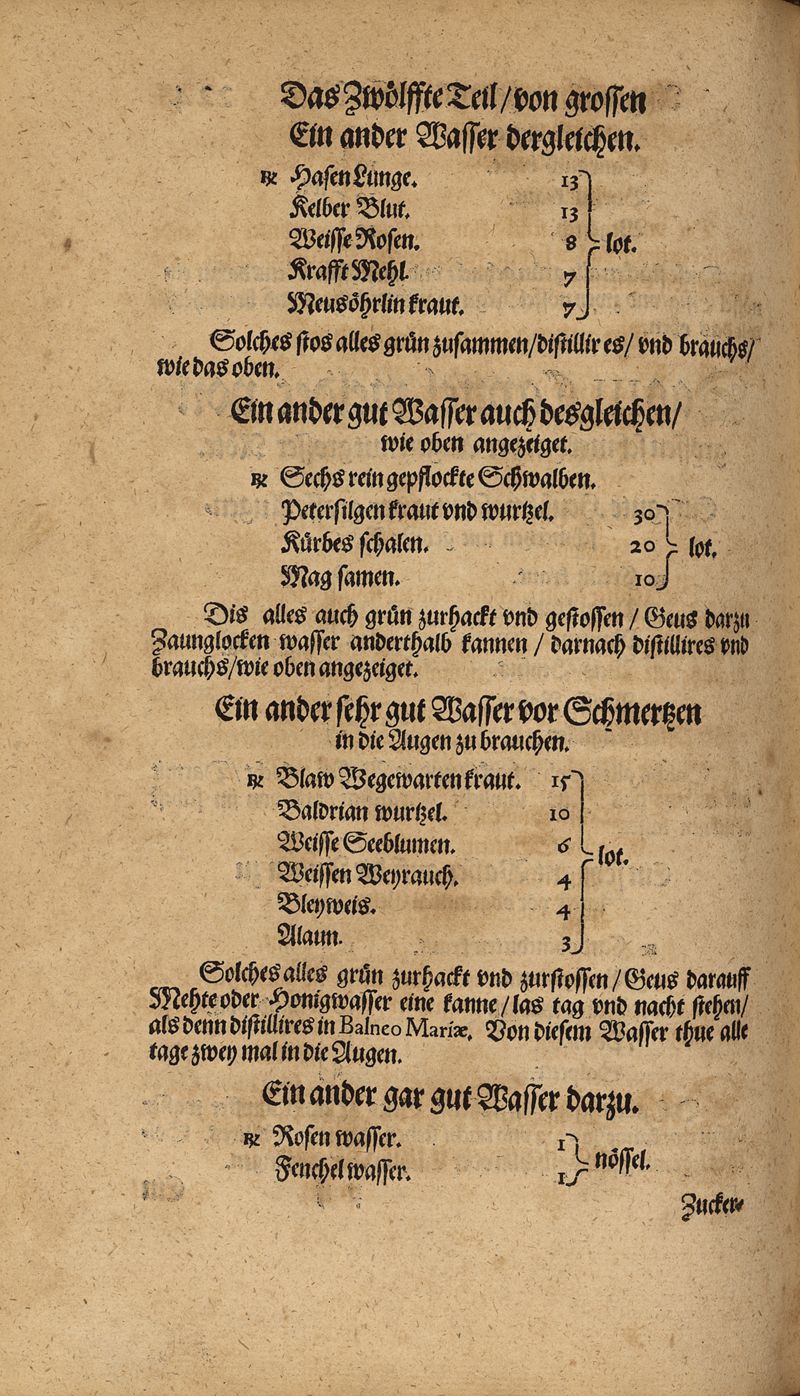 Das Zwölffte Teil/von grossen
Ein ander Wasser dergleichen.
℞ Hasen Lunge. 13
Kelber Blut. 13
Weisse Rosen. 8 lot.
Krafft Mehl. 7
Meusöhrlin kraut. 7
Solches stos alles grün zusammen/distillir es/ vnd brauchs/
wie das oben.
Ein ander gut Wasser auch desgleichen/
wie oben angezeiget.
℞ Sechs rein gepflockte Schwalben.
Petersilgen kraut vnd wurtzel. 30
Kürbes schalen. 20 lot.
Mag samen. 10
Dis alles auch grün zurhackt vnd gestossen / Geus darzu
Zaunglocken wasser anderthalb kannen / darnach distillires vnd
brauchs/wie oben angezeiget.
Ein ander sehr gut Wasser vor Schmertzen
in die Augen zu brauchen.
℞ Blaw Wegewarten kraut. 15
Baldrian wurtzel. 10
Weisse Seeblumen. 6
lot.
Weissen Weyrauch. 4
Bleyweis. 4
Alaun. 3
Solches alles grün zurhackt vnd zurstossen / Geus darauff
Mehte oder Honigwasser eine kanne/las tag vnd nacht stehen/
als denn distillires in Balneo Mariæ. Von diesem Wasser thue alle
tage zwey mal in die Augen.
Ein ander gar gut Wasser darzu.
℞ Rosen wasser. 1
nössel.
Fenchel wasser. 1
Zucker